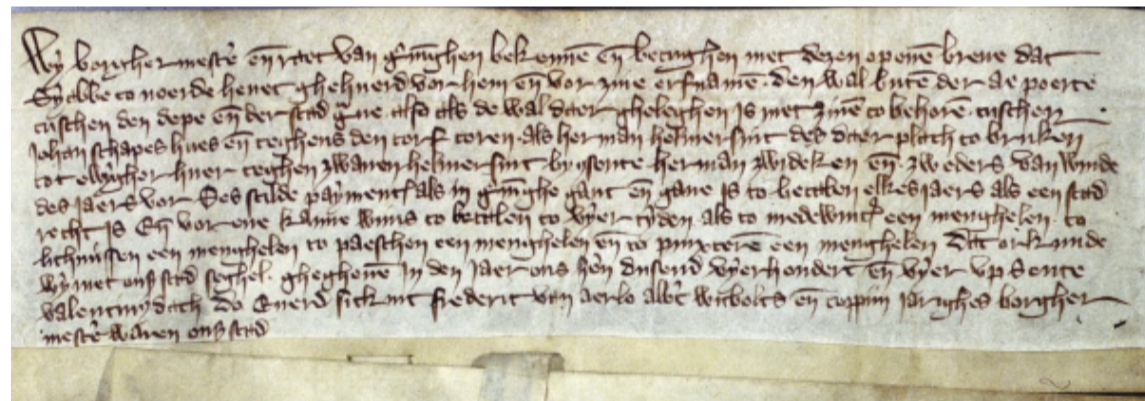 Wy borghermestere en̄ raet van gͬnīghen bekennē en̄ betughen met dezen openē breue dat
Sycbbe to noerde heuet ghehuerd vor hem en̄ vor zine erfnamē den wal butē der ae poerte
tuschen den depe en̄ der stad gͬue also als de wal daer gheleghen is met zinē to behorē tuschen
Johan schapes hues en̄ teghens den torf toren als herman helmersint des daer plach to bruken
tot ewygher huer teghen zwanen helmersint by consente herman zwideken en̄ zweders van winde
des jaers vor Ses scilde paymentˢ als in gͬnīghe gaut en̄ gaue is to betalen elkes jaers als een stad
recht is En̄ vor ene kanne wins to betalen to vyer tyden als to medewintˢ een menghelen to
lichtmissen een menghelen to paeschen een menghelen en̄ to pinxterē een menghelen Dat orkunde
wy met onsˢ stad seghel. ghegheuē in den jaer ons hēn dusend vyerhondert en̄ vyer vp Sente
valentinˢ dach do Euerd sickint frederic van aerlo albˢt wicbolts en̄ coppin jarghes borgher
mestˢe waren onsˢ stad